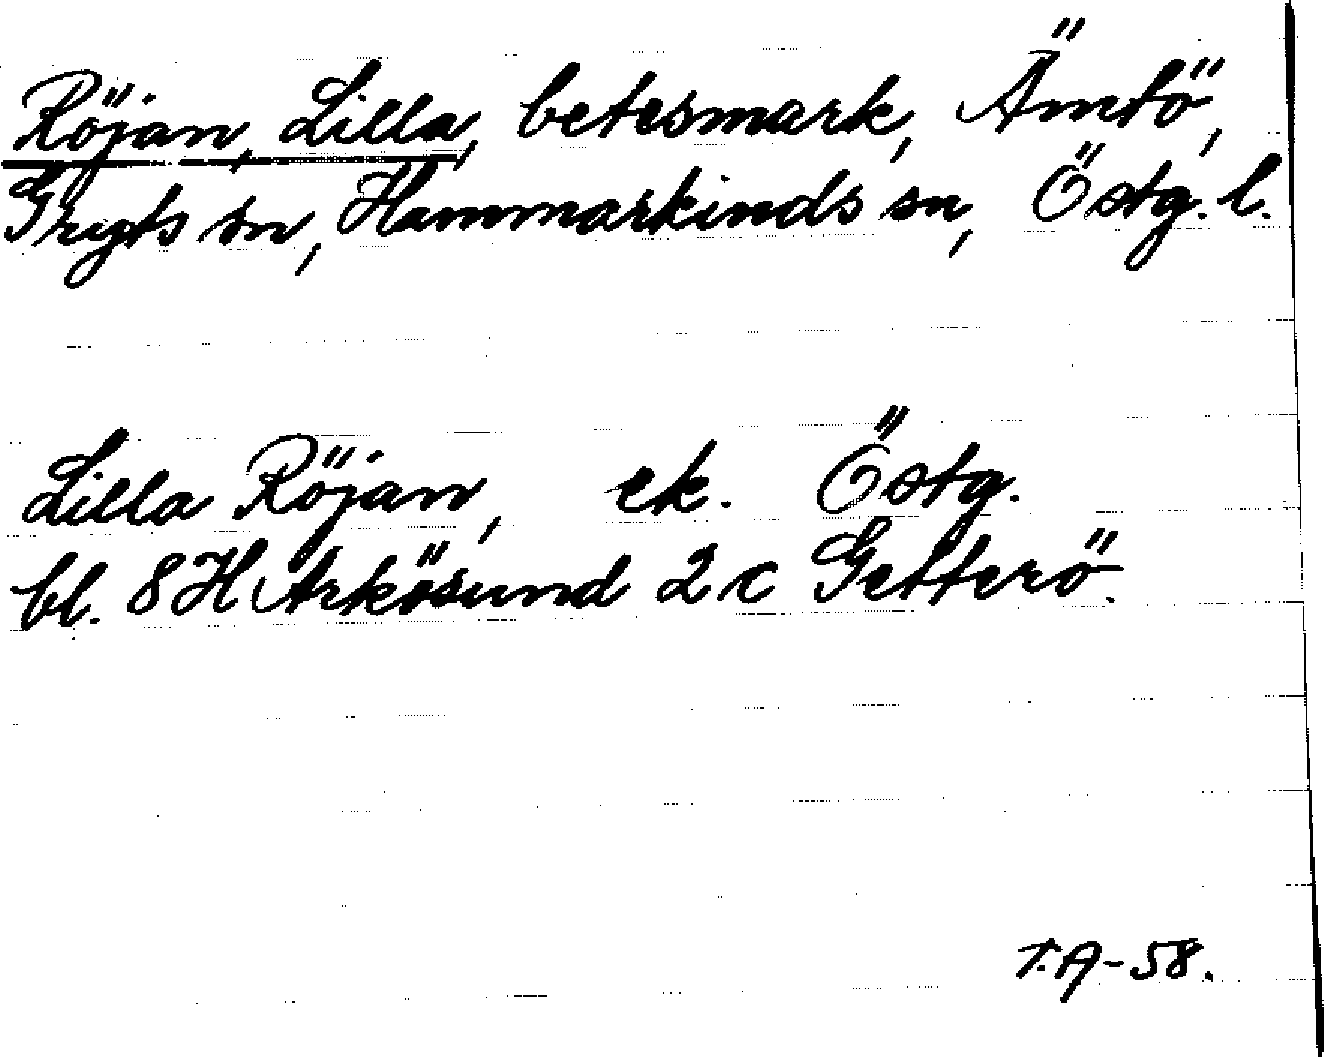 Röjan, Lilla, betesmark, Ämtö,
Gryts sn, Hammarkinds sn, Östg. l.
Lilla Röjan, ek. Östg.
bl. 8 H Arkösund 2 c Getterö.
T.A-58.